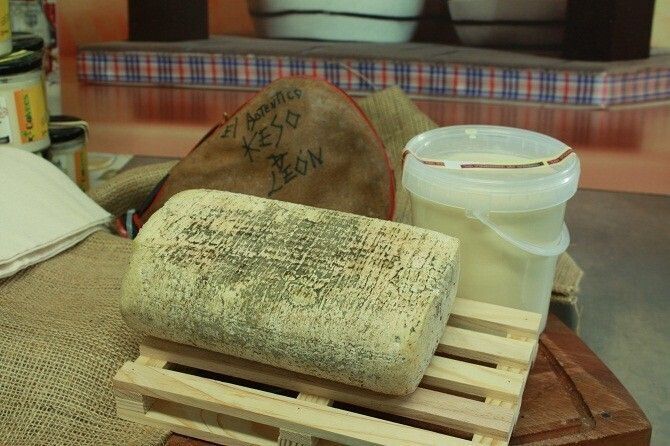 El AUTENTICO
KESO
D
LEÓN